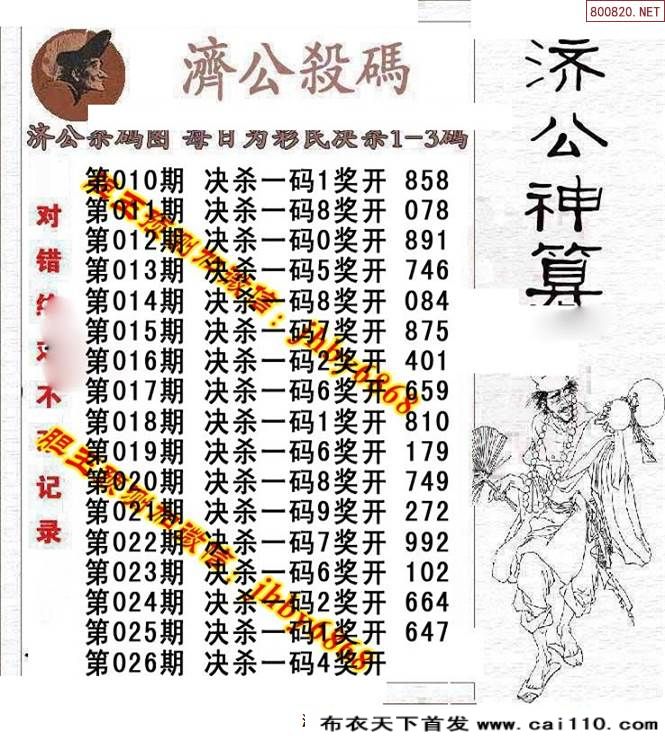 800820.NET
濟公殺碼
济公杀码图 每日为彩民决杀1-3码
第010期 决杀一码1奖开 858
第011期 决杀一码8奖开 078
第012期 决杀一码0奖开 891
第013期 决杀一码5奖开 746
第014期 决杀一码8奖开 084
第015期 决杀一码7奖开 875
第016期 决杀一码2奖开 401
第017期 决杀一码6奖开 659
第018期 决杀一码1奖开 810
第019期 决杀一码6奖开 179
第020期 决杀一码8奖开 749
第021期 决杀一码9奖开 272
第022期 决杀一码7奖开 992
第023期 决杀一码6奖开 102
第024期 决杀一码2奖开 664
第025期 决杀一码1奖开 647
第026期 决杀一码4奖开
对错 对不 记录
微信:jhby6868
微信:jhby6868
济公神算
布衣天下首发 www.cai110.com